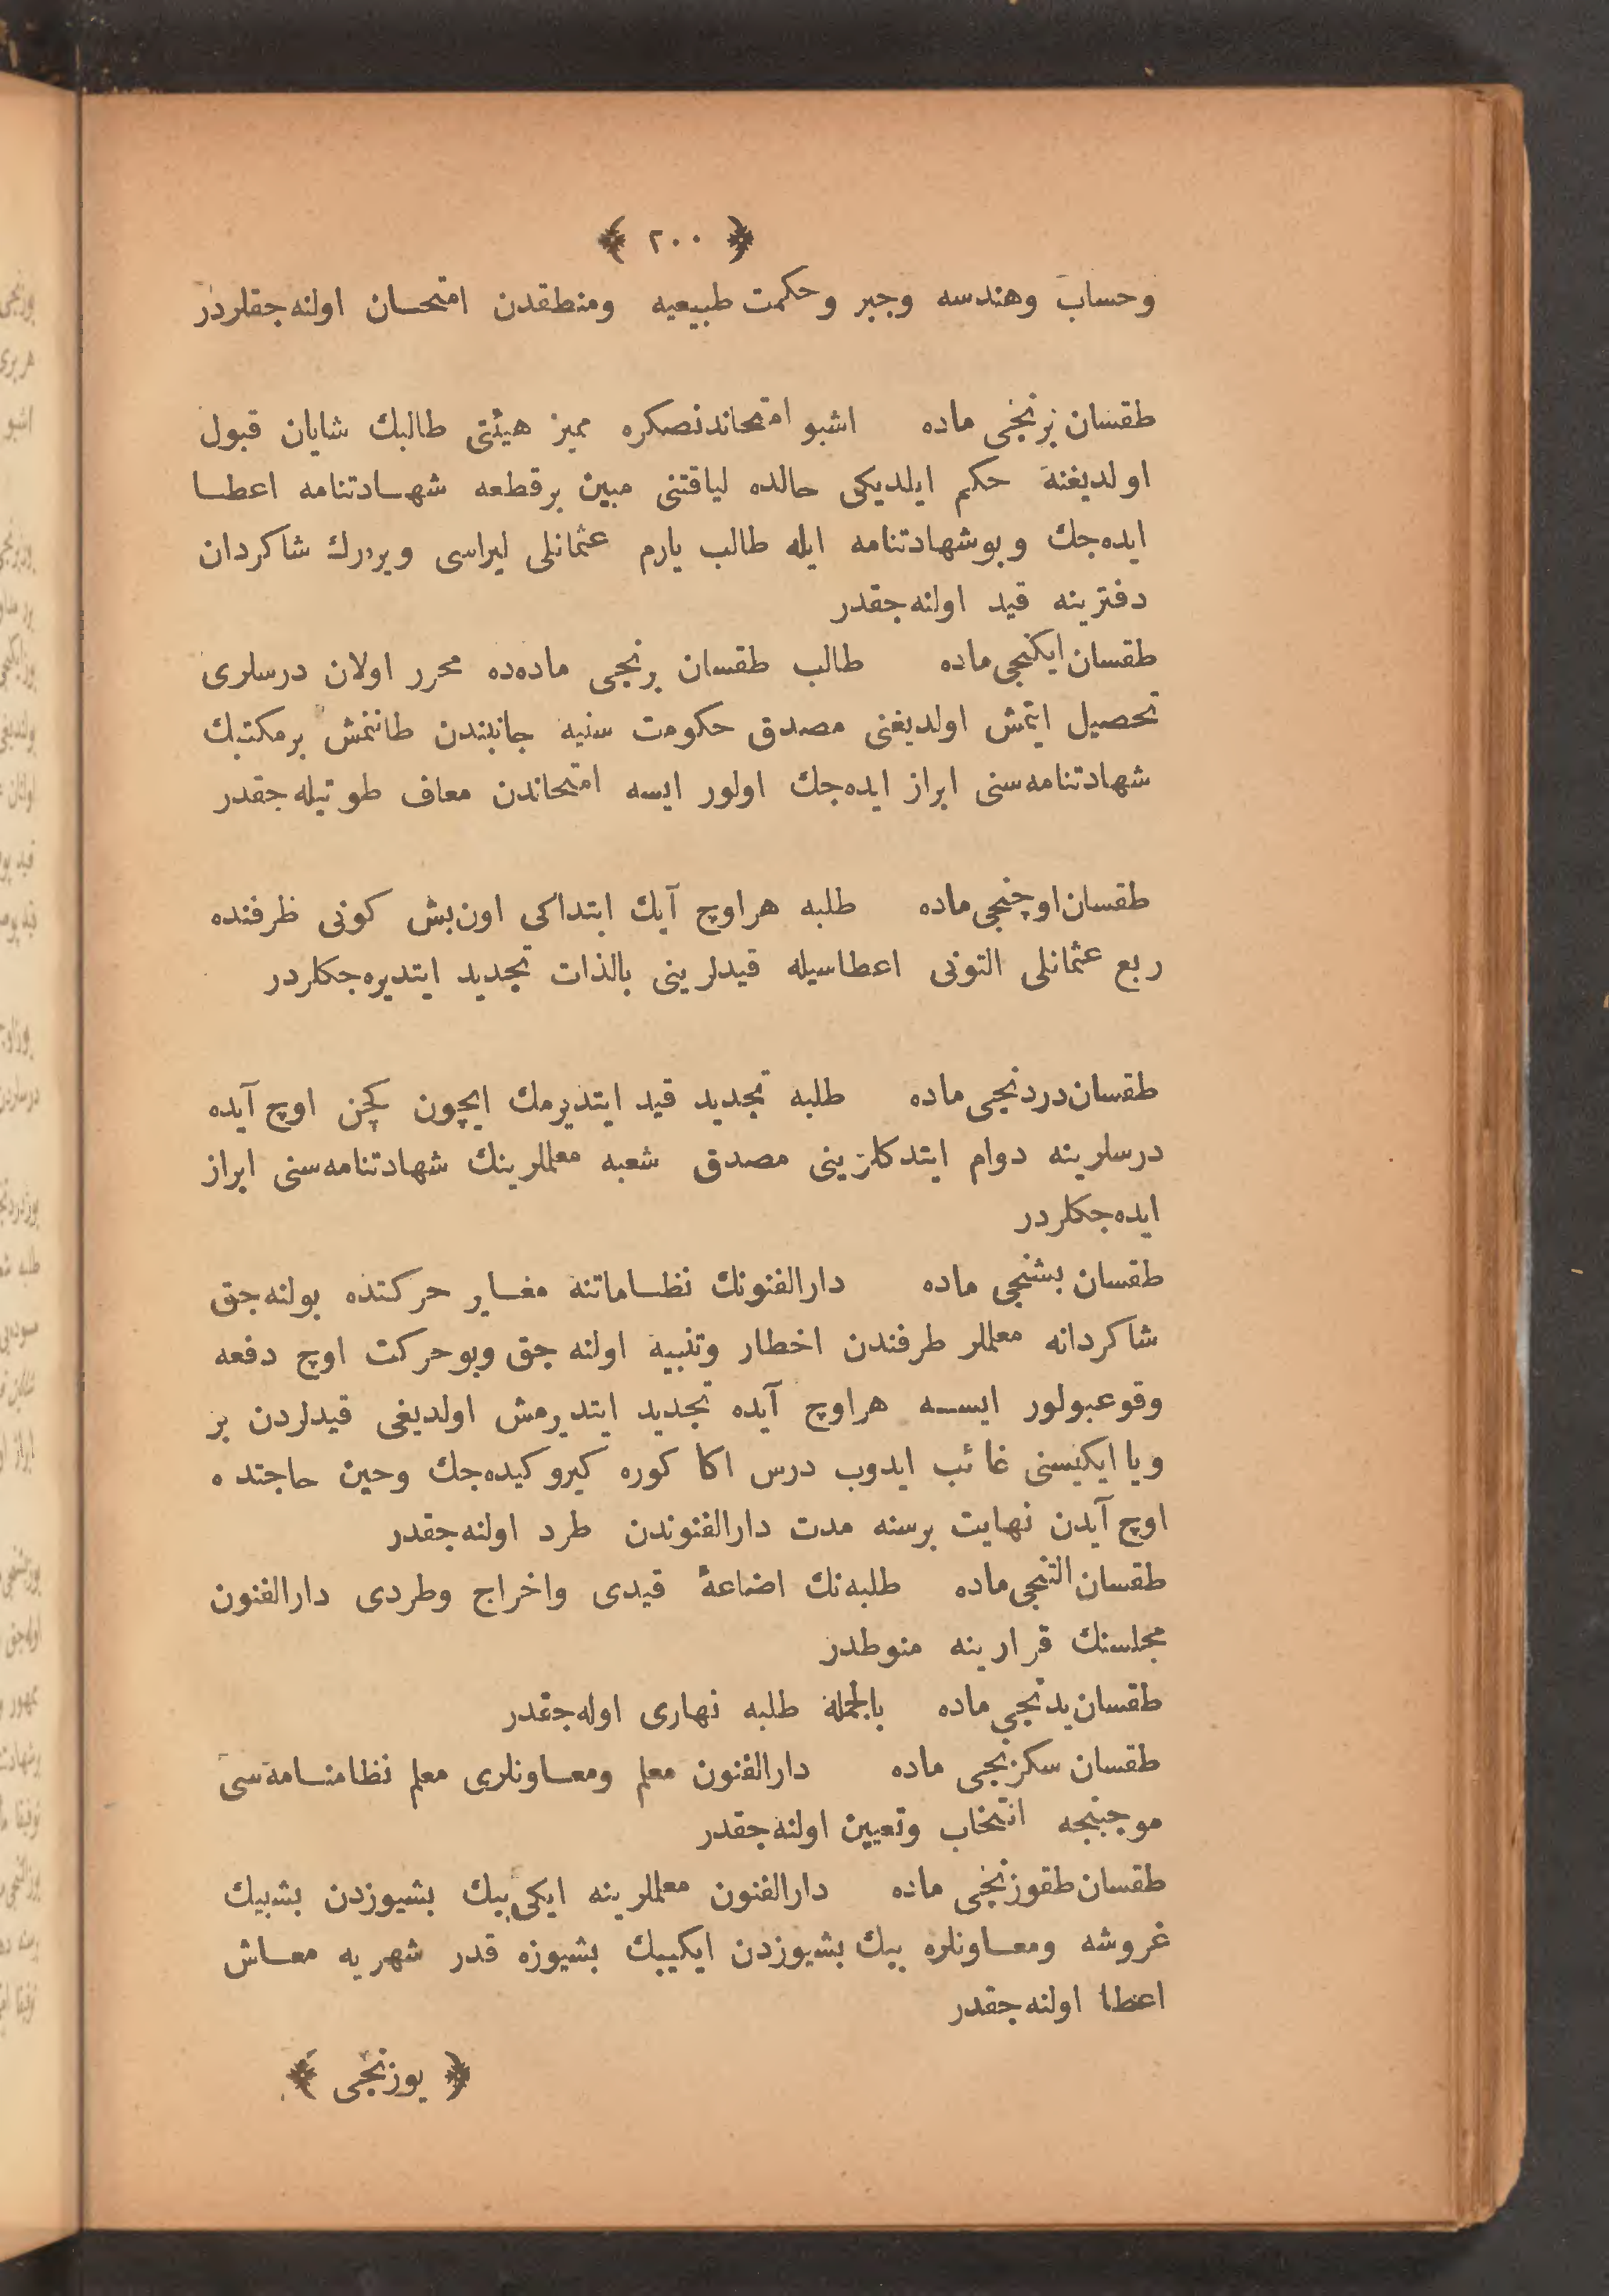 ﴿ ٢٠٠ ﴾
وحساب وهندسه وجبر وحكمت طبيعيه ومنطقدن امتحان اولنه‌جقلردر
طقسان برنجی ماده اشبو امتحاندنصكره مميز هيئتی طالبك شايان قبول
اولديغنه حكم ايلديكی حالده لياقتنی مبين برقطعه شهادتنامه اعطا
ايده‌جك وبوشهادتنامه ايله طالب يارم عثمانلی ليراسی ويررك شاكردان
دفترينه قيد اولنه‌جقدر
طقسان ايكنجی ماده طالب طقسان برنجی ماده‌ده محرر اولان درسلری
تحصيل ايتمش اولديغنی مصدق حكومت سنيه جانبندن طانتمش برمكتبك
شهادتنامه‌سنی ابراز ايده‌جك اولور ايسه امتحاندن معاف طوتيله‌جقدر
طقسان اوچنجی ماده طلبه هراوچ آيك ابتداكی اون‌بش كونی ظرفنده
ربع عثمانلی التونی اعطاسيله قيدلرينی بالذات تجديد ايتديره‌جكلردر
طقسان دردنجی ماده طلبه تجديد قيد ايتديرمك ايچون كچن اوچ آيده
درسلرينه دوام ايتدكلرينی مصدق شعبه معلملرينك شهادتنامه‌سنی ابراز
ايده‌جكلردر
طقسان بشنجی ماده دارالفنونك نظاماتنه مغاير حركتده بولنه‌جق
شاكردانه معلملر طرفندن اخطار وتنبيه اولنه جق وبوحركت اوچ دفعه
وقوعبولور ايسه هراوچ آيده تجديد ايتديرمش اولديغی قيدلردن بر
ويا ايكيسنی غائب ايدوب درس اكا كوره كيرو كيده‌جك وحين حاجتده
اوچ آيدن نهايت برسنه مدت دارالفنوندن طرد اولنه‌جقدر
طقسان التنجی ماده طلبه‌نك اضاعۀ قيدی واخراج وطردی دارالفنون
مجلسنك قرارينه منوطدر
طقسان يدنجی ماده بالجمله طلبه نهاری اوله‌جقدر
طقسان سكزنجی ماده دارالفنون معلم ومعاونلری معلم نظامنامه‌سی
موجبنجه انتخاب وتعيين اولنه‌جقدر
طقسان طقوزنجی ماده دارالفنون معلملرينه ايكی بيك بشيوزدن بشبيك
غروشه ومعاونلره بيك بشيوزدن ايكيبيك بشيوزه قدر شهريه معاش
اعطا اولنه‌جقدر
﴿ يوزنجی ﴾